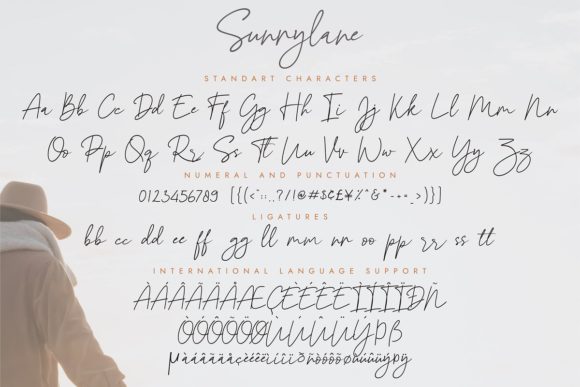 Sunnylane
STANDART CHARACTERS
Aa Bb Cc Dd Ee Ff Gg Hh Ii Jj Kk Ll Mm Nn
Oo Pp Qq Rr Ss Tt Uu Vv Ww Xx Yy Zz
NUMERAL AND PUNCTUATION
0123456789
LIGATURES
bb cc dd ee ff gg ll mm nn oo pp rr ss tt
INTERNATIONAL LANGUAGE SUPPORT
ÀÁÂÃÄÅÆÇÈÉÊËÌÍÎÏÐÑ
ÒÓÔÕÖØÙÚÛÜÝÞß
µàáâãäåçèéêëìíîïðñòóôõöøùúûüýþÿ